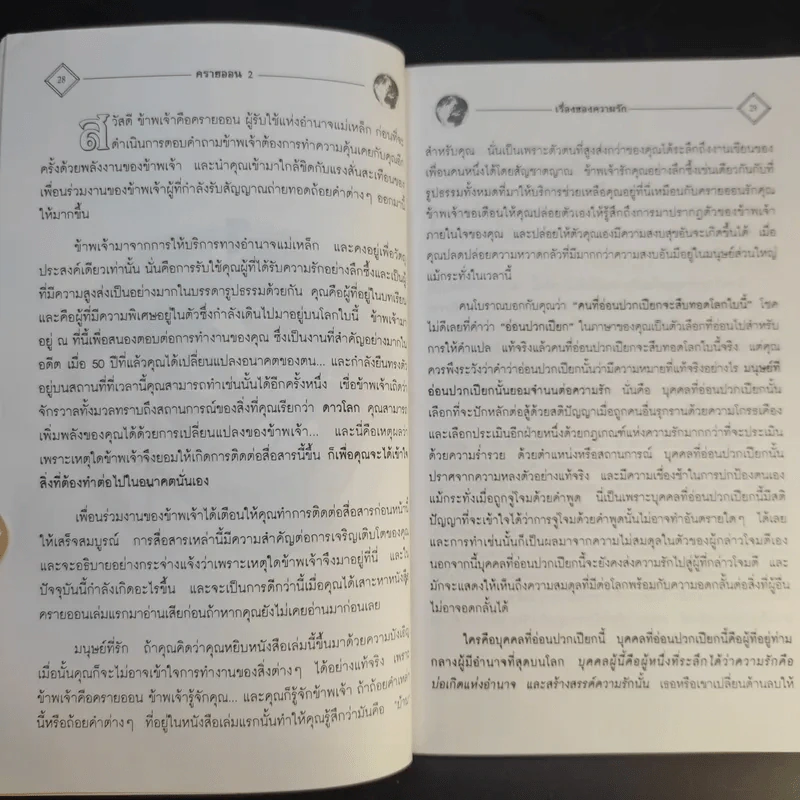 28
ครายออน 2
สวัสดี ข้าพเจ้าคือครายออน ผู้รับใช้แห่งอำนาจแม่เหล็ก ก่อนที่จะ
ดำเนินการตอบคำถามข้าพเจ้าต้องการทำความคุ้นเคยกับคุณอีก
ครั้งด้วยพลังงานของข้าพเจ้า และนำคุณเข้ามาใกล้ชิดกับแรงสั่นสะเทือนของ
เพื่อนร่วมงานของข้าพเจ้าผู้ที่กำลังรับสัญญาณถ่ายทอดถ้อยคำต่างๆ ออกมานี้
ให้มากขึ้น
ข้าพเจ้ามาจากการให้บริการทางอำนาจแม่เหล็ก และคงอยู่เพื่อวัตถุ
ประสงค์เดียวเท่านั้น นั่นคือการรับใช้คุณผู้ที่ได้รับความรักอย่างลึกซึ้งและเป็นผู้
ที่มีความสูงส่งเป็นอย่างมากในบรรดารูปธรรมด้วยกัน คุณคือผู้ที่อยู่ในบทเรียน
และคือผู้ที่มีความพิเศษอยู่ในตัวซึ่งกำลังเดินไปมาอยู่บนโลกใบนี้ ข้าพเจ้ามา
อยู่ ณ ที่นี้เพื่อสนองตอบต่อการทำงานของคุณ ซึ่งเป็นงานที่สำคัญอย่างมากใน
อดีต เมื่อ 50 ปีที่แล้วคุณได้เปลี่ยนแปลงอนาคตของตน... และกำลังยืนทรงตัว
อยู่บนสถานที่ที่เวลานี้คุณสามารถทำเช่นนั้นได้อีกครั้งหนึ่ง เชื่อข้าพเจ้าเถิดว่า
จักรวาลทั้งมวลทราบถึงสถานการณ์ของสิ่งที่คุณเรียกว่า ดาวโลก คุณสามารถ
เพิ่มพลังของคุณได้ด้วยการเปลี่ยนแปลงของข้าพเจ้า... และนี่คือเหตุผลว่า
เพราะเหตุใดข้าพเจ้าจึงยอมให้เกิดการติดต่อสื่อสารนี้ขึ้น ก็เพื่อคุณจะได้เข้าใจ
สิ่งที่ต้องทำต่อไปในอนาคตนั่นเอง
เพื่อนร่วมงานของข้าพเจ้าได้เตือนให้คุณทำการติดต่อสื่อสารก่อนหน้านี้
ให้เสร็จสมบูรณ์ การสื่อสารเหล่านี้มีความสำคัญต่อการเจริญเติบโตของคุณ
และจะอธิบายอย่างกระจ่างแจ้งว่าเพราะเหตุใดข้าพเจ้าจึงมาอยู่ที่นี่ และใน
ปัจจุบันนี้กำลังเกิดอะไรขึ้น และจะเป็นการดีกว่านี้เมื่อคุณได้เสาะหาหนังสือ
ครายออนเล่มแรกมาอ่านเสียก่อนถ้าหากคุณยังไม่เคยอ่านมาก่อนเลย
มนุษย์ที่รัก ถ้าคุณคิดว่าคุณหยิบหนังสือเล่มนี้ขึ้นมาด้วยความบังเอิญ
เมื่อนั้นคุณก็จะไม่อาจเข้าใจการทำงานของสิ่งต่างๆ ได้อย่างแท้จริง เพราะ
ข้าพเจ้าคือครายออน ข้าพเจ้ารู้จักคุณ... และคุณก็รู้จักข้าพเจ้า ถ้าถ้อยคำเหล่า
นี้หรือถ้อยคำต่างๆ ที่อยู่ในหนังสือเล่มแรกนั้นทำให้คุณรู้สึกว่ามันคือ "บ้าน"
เรื่องของความรัก
29
สำหรับคุณ นั่นเป็นเพราะตัวตนที่สูงส่งกว่าของคุณได้ระลึกถึงงานเขียนของ
เพื่อนคนหนึ่งได้โดยสัญชาตญาณ ข้าพเจ้ารักคุณอย่างลึกซึ้งเช่นเดียวกันกับที่
รูปธรรมทั้งหมดที่มาให้บริการช่วยเหลือคุณอยู่ที่นี่เหมือนกับครายออนรักคุณ
ข้าพเจ้าขอเตือนให้คุณปล่อยตัวเองให้รู้สึกถึงการมาปรากฏตัวของข้าพเจ้า
ภายในใจของคุณ และปล่อยให้ตัวคุณเองมีความสงบสุขอันจะเกิดขึ้นได้ เมื่อ
คุณปลดปล่อยความหวาดกลัวที่มีมากกว่าความสงบอันมีอยู่ในมนุษย์ส่วนใหญ่
แม้กระทั่งในเวลานี้
คนโบราณบอกกับคุณว่า "คนที่อ่อนปวกเปียกจะสืบทอดโลกใบนี้" โชค
ไม่ดีเลยที่คำว่า "อ่อนปวกเปียก" ในภาษาของคุณเป็นตัวเลือกที่อ่อนไปสำหรับ
การให้คำแปล แท้จริงแล้วคนที่อ่อนปวกเปียกจะสืบทอดโลกใบนี้จริง แต่คุณ
ควรพึงระวังว่าคำว่าอ่อนปวกเปียกนั้นมีความหมายที่แท้จริงอย่างไร มนุษย์ที่
อ่อนปวกเปียกนั้นยอมจำนนต่อความรัก นั่นคือ บุคคลที่อ่อนปวกเปียกนั้น
เลือกที่จะปักหลักต่อสู้ด้วยสติปัญญาเมื่อถูกคนอื่นรุกรานด้วยความโกรธเคือง
และเลือกประเมินอีกฝ่ายหนึ่งด้วยกฎเกณฑ์แห่งความรักมากกว่าที่จะประเมิน
ด้วยความร่ำรวย ด้วยตำแหน่งหรือสถานการณ์ บุคคลที่อ่อนปวกเปียกนั้น
ปราศจากความหลงตัวอย่างแท้จริง และมีความเชื่องช้าในการปกป้องตนเอง
แม้กระทั่งเมื่อถูกจู่โจมด้วยคำพูด นี่เป็นเพราะบุคคลที่อ่อนปวกเปียกนี้มีสติ
ปัญญาที่จะเข้าใจได้ว่าการจู่โจมด้วยคำพูดนั้นไม่อาจทำอันตรายใดๆ ได้เลย
และการทำเช่นนั้นก็เป็นผลมาจากความไม่สมดุลในตัวของผู้กล่าวโจมตีเอง
นอกจากนี้บุคคลที่อ่อนปวกเปียกนี้จะยังคงส่งความรักไปสู่ผู้ที่กล่าวโจมตี และ
มักจะแสดงให้เห็นถึงความสมดุลที่มีต่อโลกพร้อมกับความอดกลั้นต่อสิ่งที่ผู้อื่น
ไม่อาจอดกลั้นได้
ใครคือบุคคลที่อ่อนปวกเปียกนี้ บุคคลที่อ่อนปวกเปียกนี้คือผู้ที่อยู่ท่าม
กลางผู้มีอำนาจที่สุดบนโลก บุคคลผู้นี้คือผู้หนึ่งที่ระลึกได้ว่าความรักคือ
บ่อเกิดแห่งอำนาจ และสร้างสรรค์ความรักนั้น เธอหรือเขาเปลี่ยนด้านลบให้